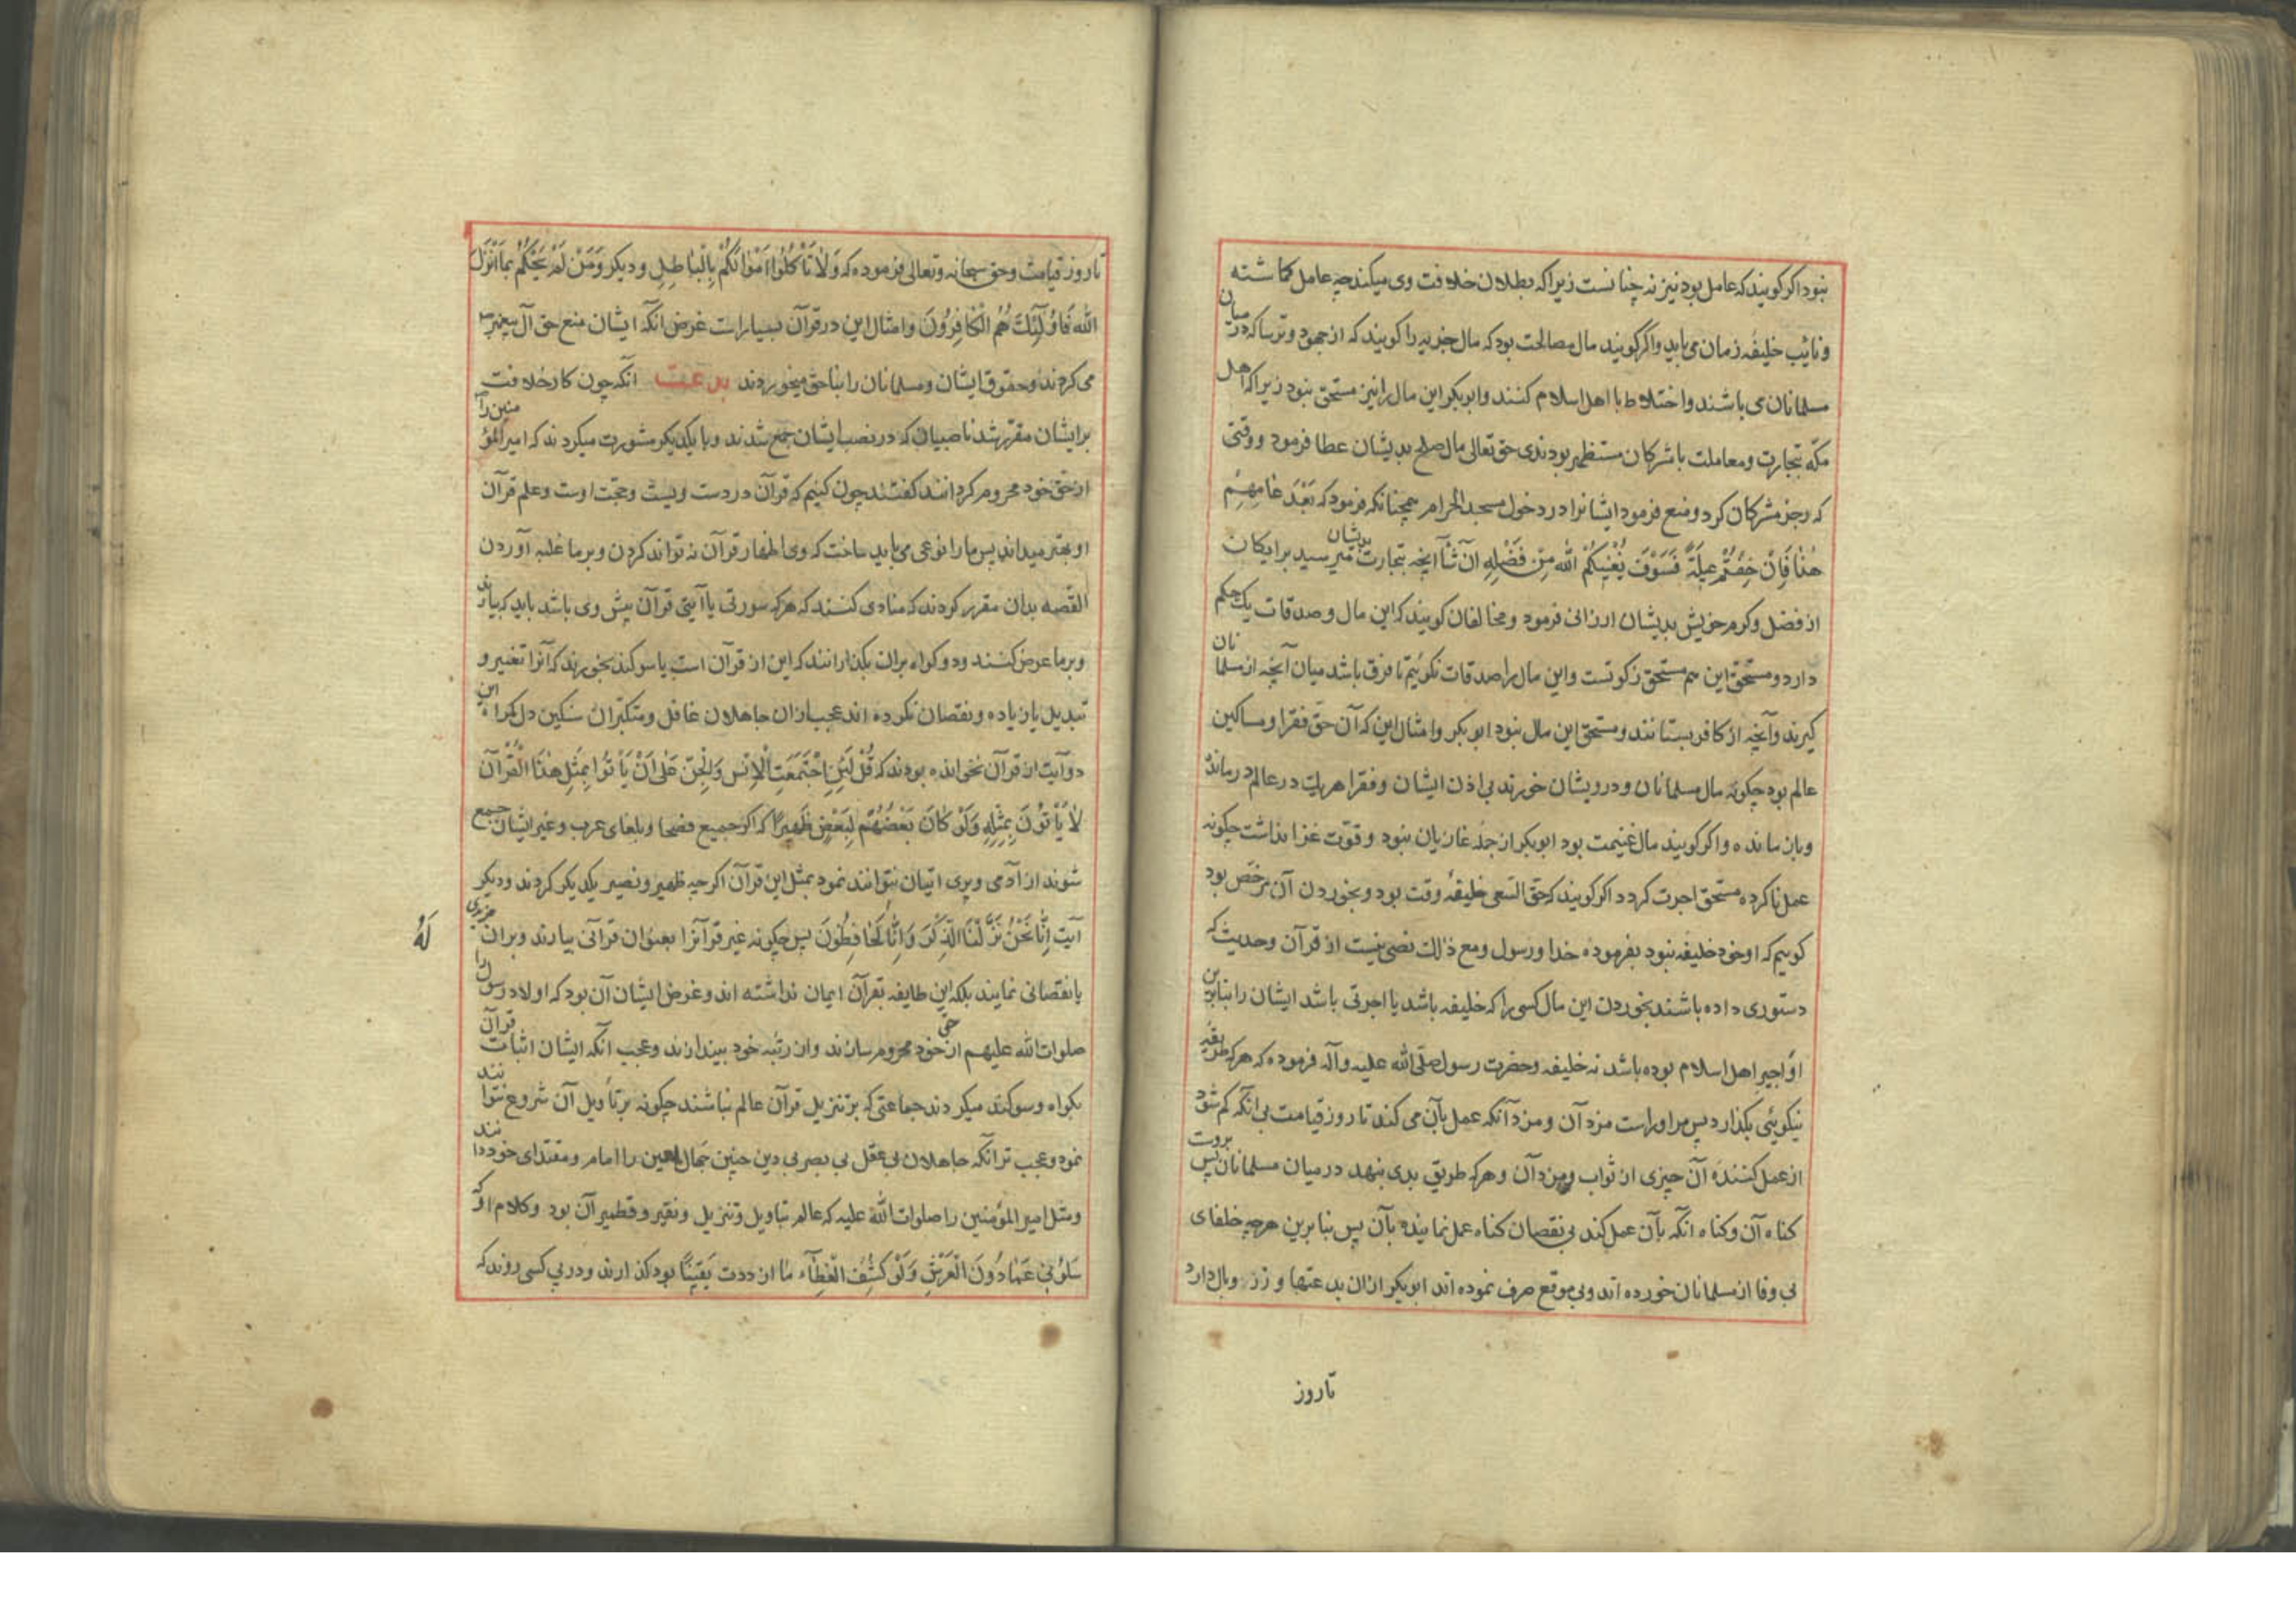 نبود اگر گویند که عامل بود نیز نه چنانست زیرا که بطلان خلافت وی میکند چه عامل گماشته
و نائب خلیفه زمان می باید و اگر گویند مال مصالحت بود که مال جزیه را گویند که از جهود و ترسا که در میان
مسلمانان می باشند و اختلاط با اهل اسلام کنند و ابوبکر این مال را نیز مستحق نبود زیرا که اهل
مکّه بتجارت و معاملت با مشرکان مستظهر بودندی حق تعالی مال صلح بدیشان عطا فرمود و وقتی
که زجر مشرکان کرد و منع فرمود ایشانرا در دخول مسجد الحرام همچنانکه فرمود که بَعْدَ عَامِهِمْ
هٰذَا فَاِنْ خِفْتُمْ عَیلَةً فَسَوْفَ یُغْنِیکُمُ اللّٰه مِنْ فَضْلِهِ اَنْ شَآ آنچه بتجارت بدیشان میرسید برایکان
از فضل و کرم خویش بدیشان ارزانی فرمود و مخالفان گویند که این مال و صدقات یک حکم
دارد و مستحق این هم مستحق زکوتست و این مال را صدقات نگوئیم تا فرق باشد میان آنچه از مسلمانان
گیرند و آنچه از کافر بستانند و مستحق این مال نبود ابوبکر و امثال این که آن حق فقرا و مساکین
عالم بود چگونه مال مسلمانان و درویشان خورند بی اذن ایشان و فقرا هر یک در عالم درمانده
و باز مانده و اگر گویند مال غنیمت بود ابوبکر از جمله غازیان نبود و قوّت غزا نداشت چگونه
عمل ناکرده مستحق اجرت گردد اگر گویند که حقّ السّعی خلیفهٔ وقت بود و بخوردن آن مرخّص بود
گوییم که او خود خلیفه نبود بفرموده خدا و رسول و مع ذلک نصی نیست از قرآن و حدیث که
دستوری داده باشند بخوردن این مال کسی را که خلیفه باشد یا اجرتی باشد ایشان را بنابرین
او اجیر اهل اسلام بوده باشد نه خلیفه و حضرت رسول صلّی اللّٰه علیه و آله فرموده که هر که طریقه
نیکوئی بگذارد پس مر او راست مزد آن و مزد آنکه عمل بآن می کند تا روز قیامت بی انکه کم شود
از عمل کننده آن چیزی از ثواب و مزد آن و هر که طریق بدی بنهد در میان مسلمانان پس بروست
گناه آن و گناه انکه بآن عمل کند بی نقصان گناه عمل نماینده بآن پس بنا برین هر چه خلفای
بی وفا از مسلمانان خورده اند و بی موقع صرف نموده اند ابوبکر ازان بدعتها وزر و وبال دارد
تا روز
تا روز قیامت و حق سبحانه و تعالی فرموده که وَلٰا تَأْکُلُوا اَمْوَالَکُمْ بِالْبَاطِلِ و دیگر وَمَنْ لَمْ یَحْکُمْ بِمَا اَنْزَلَ
اللّٰه فَاُولٰئِکَ هُمُ الْکٰافِرُونَ و امثال این در قرآن بسیار است غرض انکه ایشان منع حق آل پیغمبر
می کردند و حقوق ایشان و مسلمانان را بناحق میخوردند بدعت انکه چون کار خلافت
بر ایشان مقرّر شد ناصبیان که در نصب ایشان جمع شدند و با یکدیگر مشورت میکردند که امیر المؤمنین را
از حق خود محروم گردانند گفتند چون کنیم که قرآن در دست ویست و حجّت اوست و علم قرآن
او بهتر میداند پس ما را نوعی می باید ساخت که وی اظهار قرآن نه تواند کردن و بر ما غلبه آوردن
القصه بدان مقرر کردند که منادی کنند که هر که سورتی یا آیتی قرآن پیش وی باشد باید که بیارند
و بر ما عرض کنند و دو گواه بران بگذارانند که این از قرآن است یا سوگند بخورند که آنرا تغییر و
تبدیل یا زیاده و نقصان نکرده اند عجب ازان جاهلان غافل و متکبّران سنگین دل گمراه این
دو آیت از قرآن نخوانده بودند که قُلْ لَئِنِ اجْتَمَعَتِ الْاِنْس وَالْجِنّ عَلٰی اَنْ یَأْتُوا بِمِثْلِ هٰذَا الْقُرْآن
لٰا یَأْتُونَ بِمِثْلِهِ وَلَوْ کٰانَ بَعْضُهُمْ لِبَعْضٍ ظَهِیرًا که اگر جمیع فصحا و بلغای عرب و غیر ایشان جمع
شوند از آدمی و پری اتیان نتوانند نمود بمثل این قرآن اگر چه ظهیر و نصیر یکدیگر گردند و دیگر
آیت اِنَّا نَحْنُ نَزَّلْنَا الذِّکْرَ وَاِنَّا لَحَافِظُونَ پس چگونه غیر قرآنرا بعنوان قرآنی بیارند و بران مزیدی
لَهُ
یا نقصانی نمایند بلکه این طایفه بقرآن ایمان نداشته اند و غرض ایشان آن بود که اولاد رسول را
صلوات اللّٰه علیهم از حق خود محروم سازند و از رتبه خود بیندازند و عجب آنکه ایشان اثبات قرآن
بگواه و سوگند میکردند جماعتی که بر تنزیل قرآن عالم نباشند چگونه بر تأویل آن شروع توانند
نمود و عجب تر آنکه جاهلان بی عقل بی بصر بی دین چنین جهال لعین را امام و مقتدای خود دانند
و مثل امیر المؤمنین را صلوات اللّٰه علیه که عالم بتاویل و تنزیل و نقیر و قطمیر آن بود و کلام او که
سَلُونِی عَمَّا دُونَ الْعَرْشِ وَلَوْ کُشِفَ الْغِطٰآء مٰا ازددت یَقِینًا بود گذارند و در پی کسی روند که